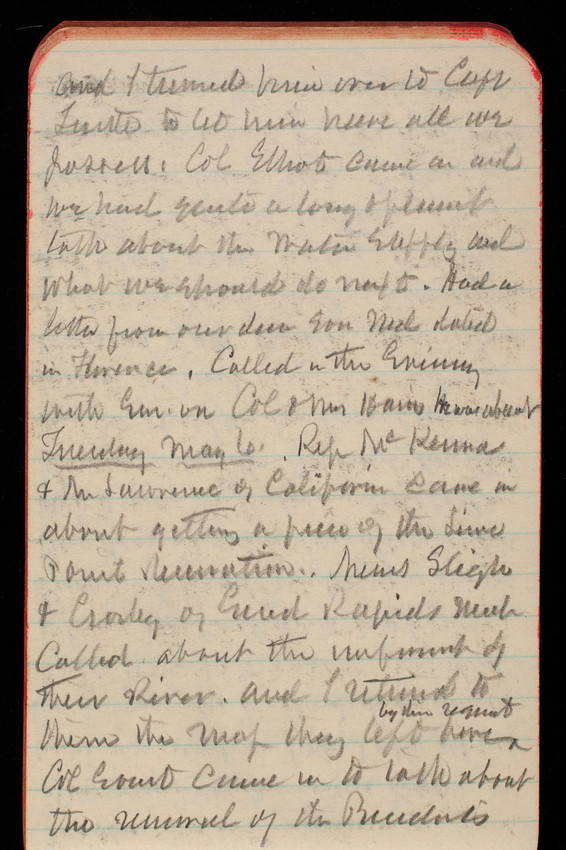 and I turned him over to Capt
to let him have all we
possess. Col Elliot came in and
we had quite a long & pleasant
talk about the Water Supply and
what we should do next. Had a
letter from our dear son Ned dated
in Florence. Called in the Evening
with Em. on Col & Mrs Hains He was absent
Tuesday May 6. Rep McKenna
& Mr Lawrence of California came in
about getting a piece of the Lime
Point Reservation. Messrs Sligh
& Crosby of Grand Rapids Mich
Called about the improvement of
their River. and I returned to
by their request
them the Map they left here
Col Grant came in to talk about
the removal of the Presidents